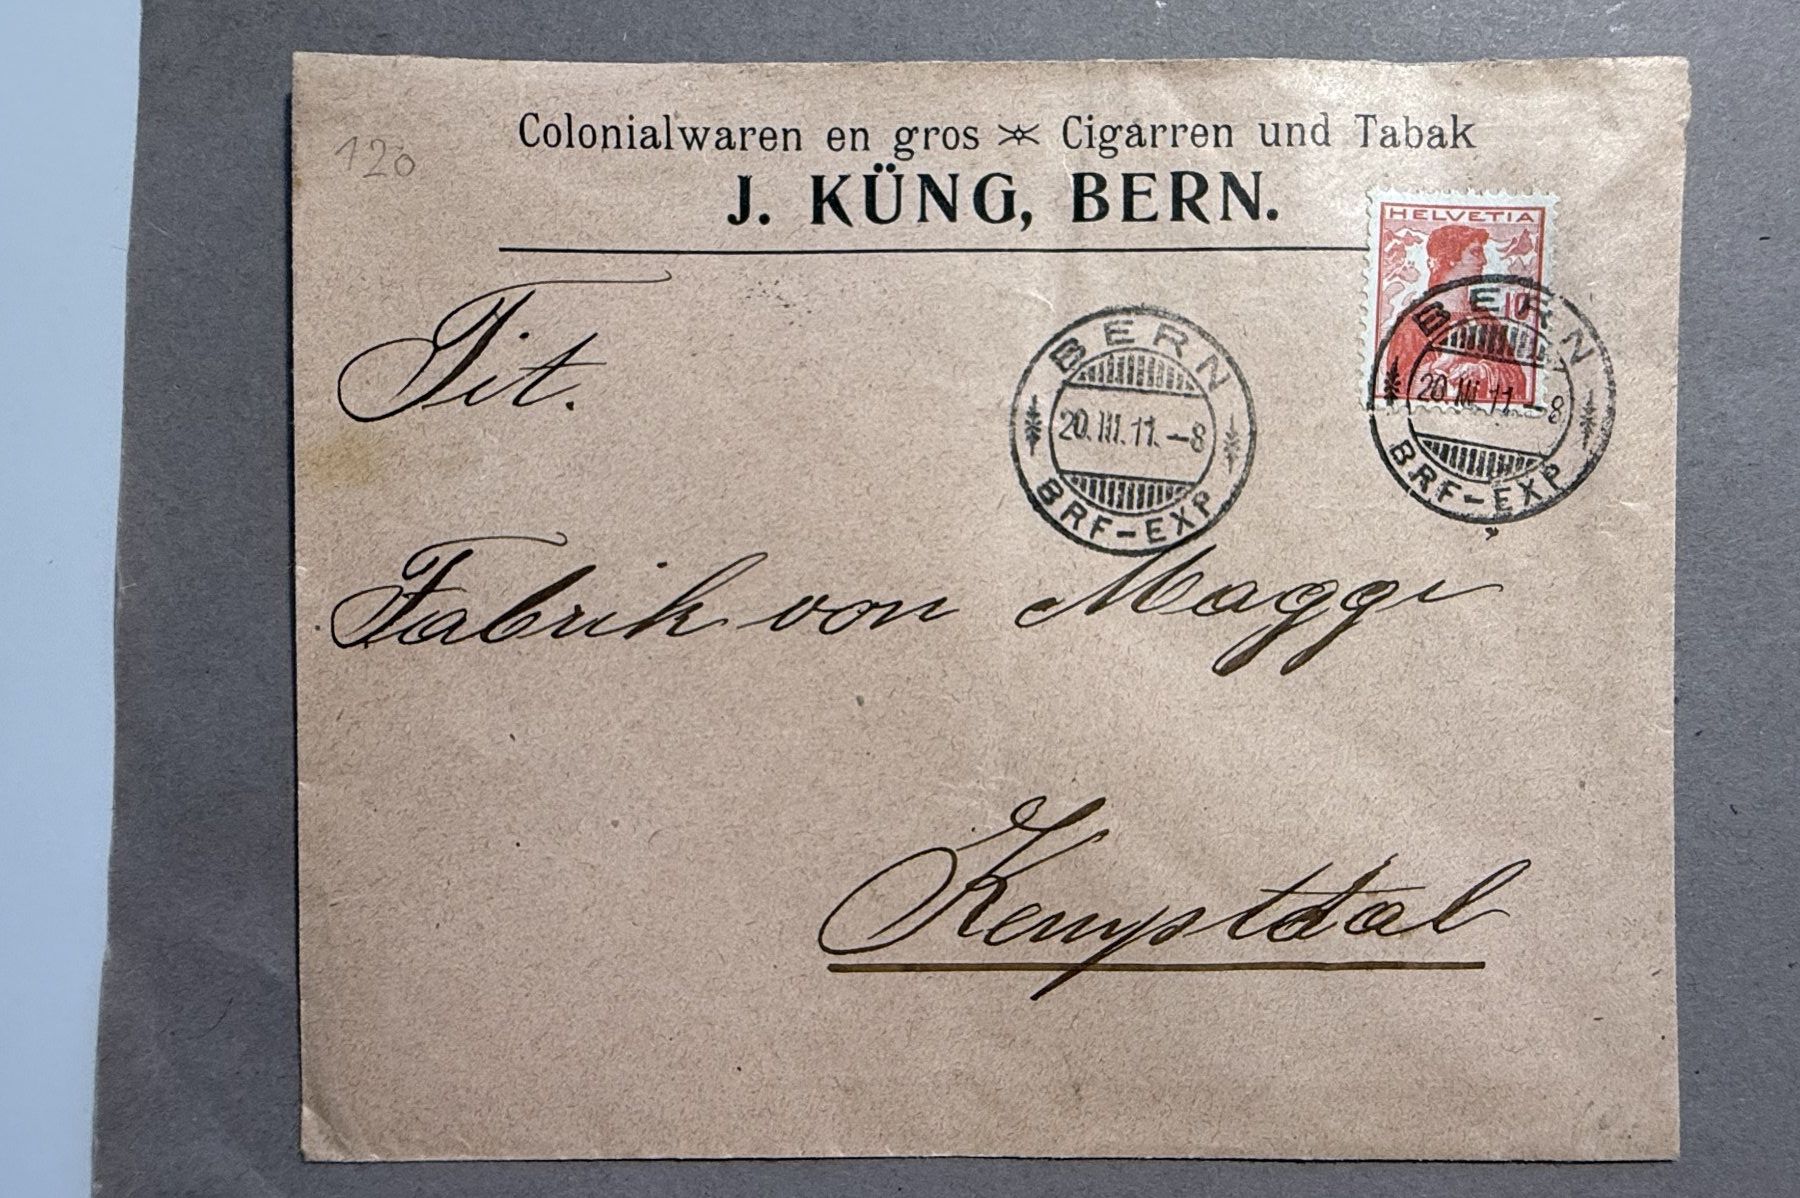 120
Colonialwaren en gros Cigarren und Tabak
J. KÜNG, BERN.
HELVETIA
10
BERN
20.III.11.-8
BRF-EXP
BERN
20.III.11.-8
BRF-EXP
Tit.
Fabrik von Maggi
Kemptdal